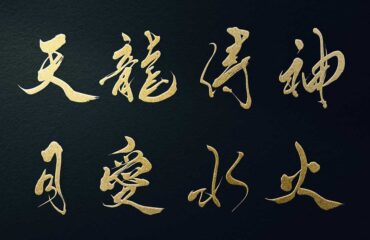 天龍侍神
月愛水火